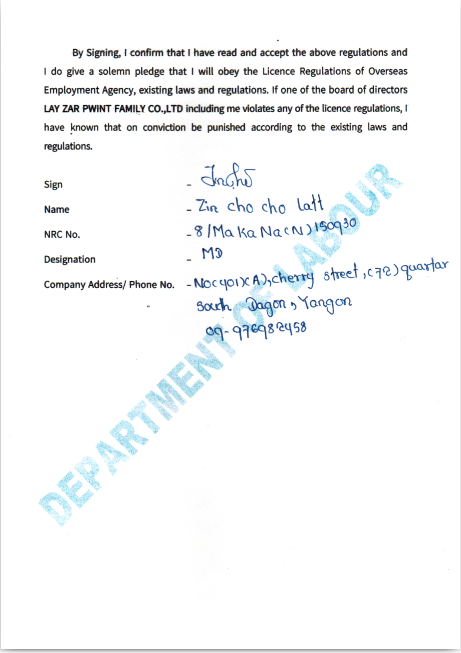 By Signing, I confirm that I have read and accept the above regulations and
I do give a solemn pledge that I will obey the Licence Regulations of Overseas
Employment Agency, existing laws and regulations. If one of the board of directors
LAY ZAR PWINT FAMILY CO.,LTD including me violates any of the licence regulations, I
have known that on conviction be punished according to the existing laws and
regulations.
Sign -
Name - Zin cho cho latt
NRC No. - 8/MaKaNa(N)150930
Designation - MD
Company Address/ Phone No. - No(401)(A), cherry street, (72) quartar
South Dagon, Yangon
09-976982458
DEPARTMENT OF LABOUR